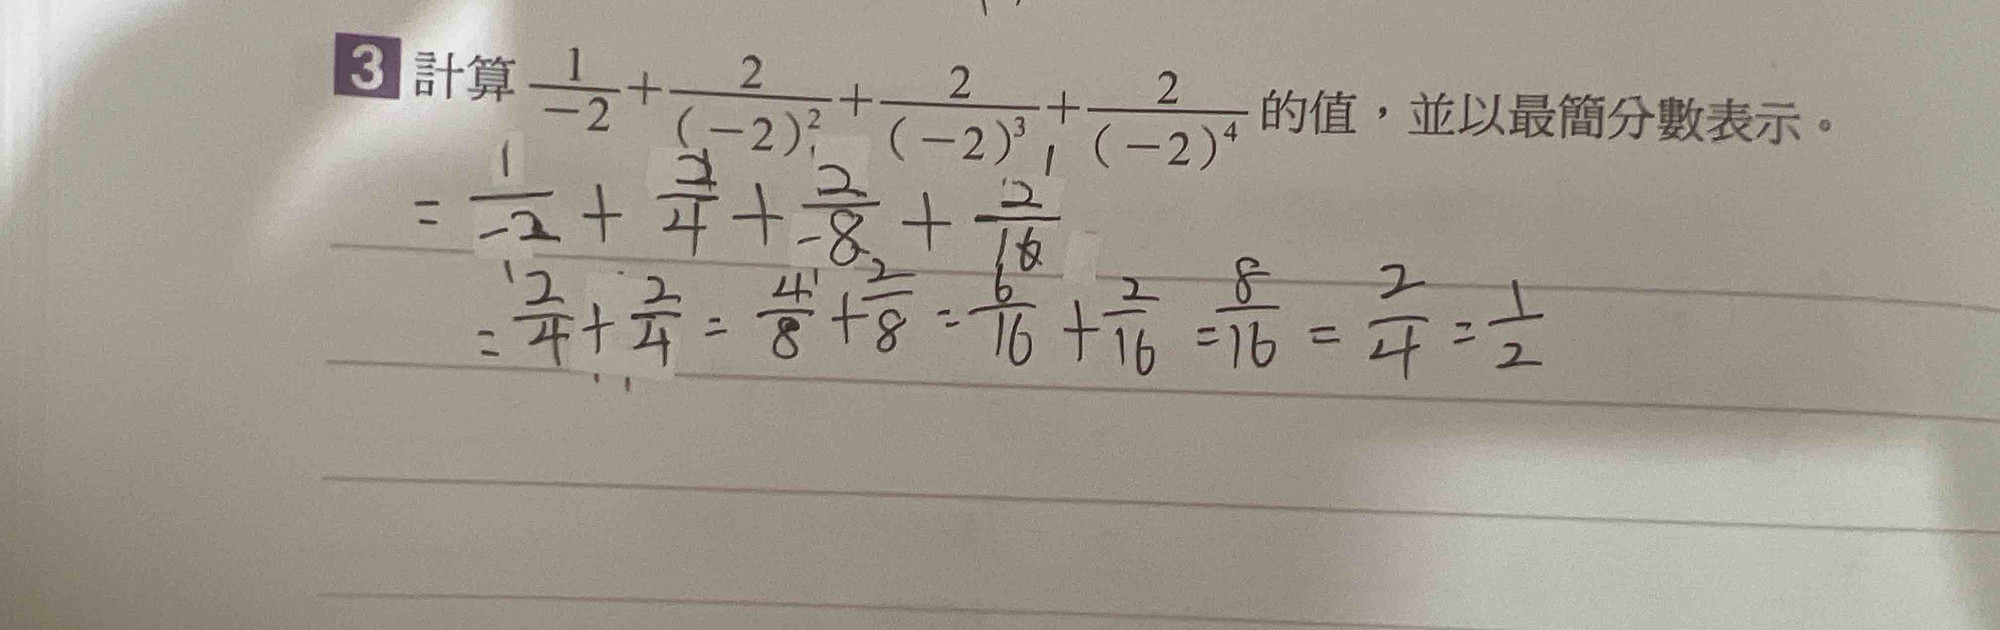 3 計算 1/-2 + 2/(-2)² + 2/(-2)³ + 2/(-2)⁴ 的值，並以最簡分數表示。
= 1/-2 + 2/4 + 2/-8 + 2/16
= 2/4 + 2/4 = 4/8 + 2/8 = 6/16 + 2/16 = 8/16 = 2/4 = 1/2